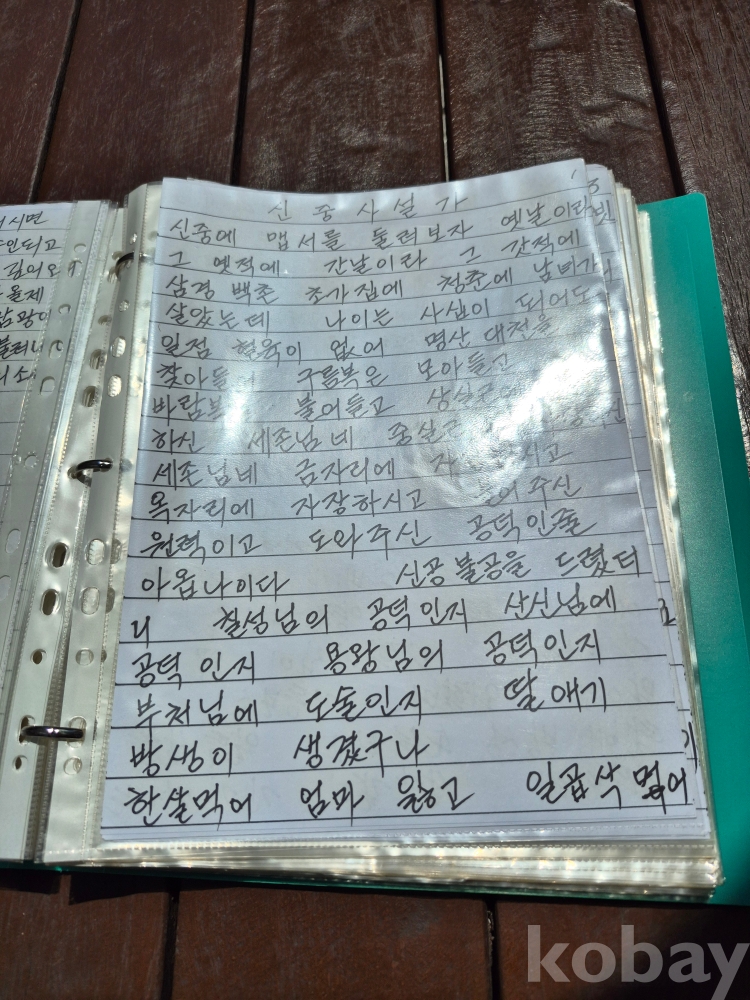 신중사설가
신중에 맵서를 둘러보자 옛날이라
그 옛적에 간날이라 그 갓적에
삼경 백춘 초가집에 청춘에 남녀가
살았는데 나이는 사십이 되어도
일점 혈육이 없어 명산 대천을
찾아들 구름북은 모아들고
바람 불어들고
하신 세존님네
세존님네 금자리에 시고
옥자리에 자장하시고 주신
원력이고 도와주신 공덕인줄
아옵나이다 신공 불공을 드렸더
니 칠성님의 공덕인지 산신님에
공덕인지 용왕님의 공덕인지
부처님에 도술인지 딸애기
방생이 생겼구나
한살먹어 엄마 잃고 일곱삭 먹어
시면
인되고
길어
올제
kobay